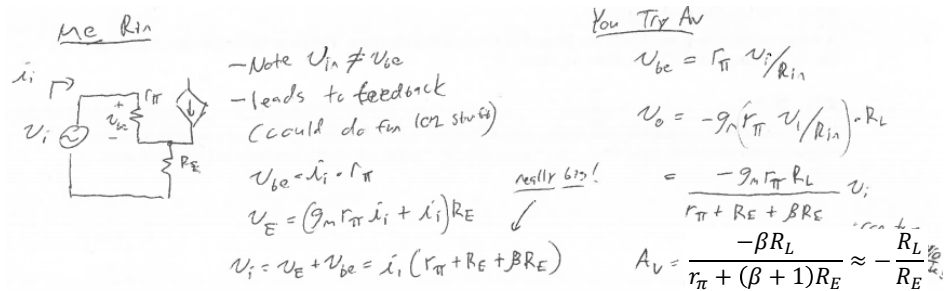 Me Rin
i_i
r_π
+
v_be
-
v_i
R_E
- Note v_in ≠ v_be
- leads to feedback
(could do fun 102 stuff)
v_be = i_i · r_π
really big!
v_E = (g_m r_π i_i + i_i) R_E
v_i = v_E + v_be = i_i (r_π + R_E + βR_E)
You Try Av
v_be = r_π v_i/R_in
v_o = -g_m (r_π v_i/R_in) · R_L
= -g_m r_π R_L / (r_π + R_E + βR_E) v_i
A_v = -βR_L / (r_π + (β + 1)R_E) ≈ - R_L / R_E